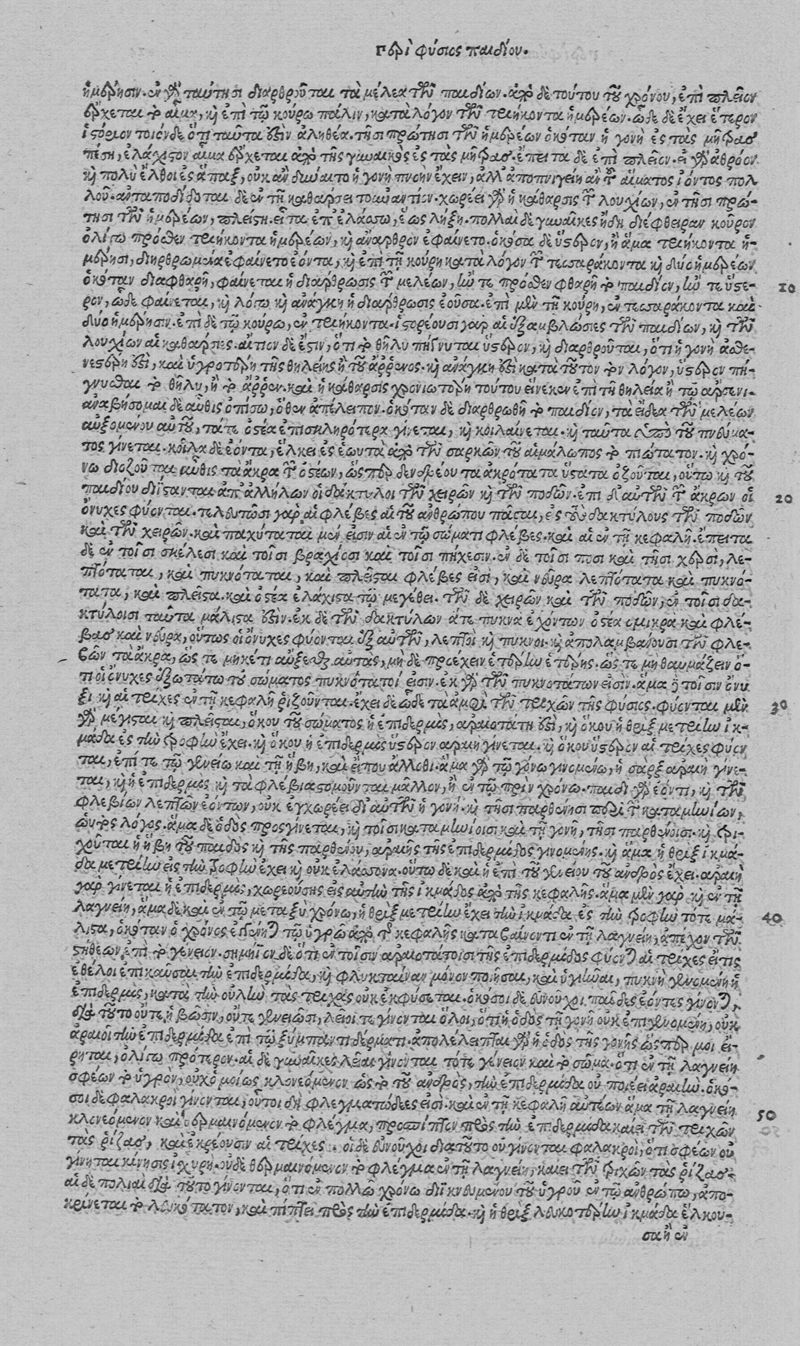 περὶ φύσιος παιδίου.
ἡμέρῃσιν. ἐν γὰρ ταύτῃσι διαρθροῦται τὰ μέλεα τῶν παιδίων. ἀπὸ δὲ τούτου τοῦ χρόνου, ἐπὶ πλεῖον
ἔρχεται τὸ αἷμα, καὶ ἐπὶ τῷ κούρῳ πάλιν, κατὰ λόγον τῶν τριήκοντα ἡμερέων. ὧδε δὲ ἔχει ἕτερον
ἱστόριον τοιόνδε ὅτι ταῦτά ἐστιν ἀληθέα. τῇσι πρώτῃσι τῶν ἡμερέων ὁκόταν ἡ γονὴ ἐς τὰς μήτρας
πέσῃ, ἐλάχιστον αἷμα ἔρχεται ἀπὸ τῆς γυναικὸς ἐς τὰς μήτρας. ἔπειτα δὲ ἐπὶ πλεῖον. εἰ γὰρ ἀθρόον
καὶ πολὺ ἔλθοι ἐς ἅπαξ, οὐκ ἂν δύναιτο ἡ γονὴ πνοὴν ἔχειν, ἀλλ' ἀποπνιγείη ἂν τοῦ αἵματος ἰόντος πολ
λοῦ. ἀνταποδίδοται δὲ ἐν τῇ καθάρσει τοὐναντίον. χωρέει γὰρ ἡ κάθαρσις τῶν λοχίων, ἐν τῇσι πρώ-
τῃσι τῶν ἡμερέων, πλείστη. εἶτα ἐπ' ἔλασσω, ἕως λήξῃ. πολλαὶ δὲ γυναῖκες ἤδη διέφθειραν κοῦρον
ὀλίγῳ πρόσθεν τριήκοντα ἡμερέων, καὶ ἄναρθρον ἐφαίνετο. ὁκόσα δὲ ὕστερον, ἢ ἅμα τριήκοντα ἡ-
μέρῃσι, διηρθρωμένα ἐφαίνετο ἐόντα, καὶ ἐπὶ τῇ κούρῃ κατὰ λόγον τῶν τεσσαράκοντα καὶ δύο ἡμερέων
ὁκόταν διαφθαρῇ, φαίνεται ἡ διάρθρωσις τῶν μελέων, ἤν τε πρόσθεν φθαρῇ τὸ παιδίον, ἤν τε ὕστε-
ρον, ὧδε φαίνεται, καὶ λόγῳ καὶ ἀνάγκῃ ἡ διάρθρωσις ἐοῦσα. ἐπὶ μὲν τῇ κούρῃ, ἐν τεσσαράκοντα καὶ
δύο ἡμέρῃσιν. ἐπὶ δὲ τῷ κούρῳ, ἐν τριήκοντα. ἱστορέουσι γὰρ αἱ ἐξαμβλώσιες τῶν παιδίων, καὶ τῶν
λοχίων αἱ καθάρσιες. αἴτιον δέ ἐστιν, ὅτι τὸ θῆλυ πήγνυται ὕστερον, καὶ διαρθροῦται, ὅτι ἡ γονὴ ἀσθε-
νεστέρη ἐστὶ, καὶ ὑγροτέρη τῆς θηλείης ἢ τοῦ ἄρσενος. καὶ ἀνάγκη ἐστὶ κατὰ τοῦτον τὸν λόγον, ὕστερον πή-
γνυσθαι τὸ θῆλυ, ἢ τὸ ἄρσεν. καὶ ἡ κάθαρσις χρονιωτέρη τούτου εἵνεκεν ἐπὶ τῇ θηλείᾳ ἢ τῷ ἄρσενι.
ἀναβήσομαι δὲ αὖθις ὀπίσω, ὅθεν ἀπέλειπον. ὁκόταν δὲ διαρθρωθῇ τὸ παιδίον, τὰ εἴδεα τῶν μελέων
αὐξομένου αὐτοῦ, τά τε ὀστέα ἐπισκληρότερα γίνεται, καὶ κοιλαίνεται. καὶ ταῦτα ὑπὸ τοῦ πνεύμα-
τος γίνεται. κοῖλα δὲ ἐόντα, ἕλκει ἐς ἑωυτὰ ἀπὸ τῶν σαρκῶν τοῦ αἱμάλωπος τὸ πιότατον. καὶ χρό-
νῳ διοζοῦται καὖθις τὰ ἄκρα τῶν ὀστέων, ὥσπερ δενδρέου τὰ ἀκρότατα ὕστατα ὀζοῦται, οὕτω καὶ τοῦ
παιδίου διΐστανται ἀπ' ἀλλήλων οἱ δάκτυλοι τῶν χειρῶν καὶ τῶν ποδῶν. ἐπὶ δ' αὐτῶν τῶν ἄκρων οἱ
ὄνυχες φύονται. τελευτῶσι γὰρ αἱ φλέβες αἱ τοῦ ἀνθρώπου πᾶσαι, ἐς τοὺς δακτύλους τῶν ποδῶν
καὶ τῶν χειρῶν. καὶ παχύταται μέν εἰσιν αἱ ἐν τῷ σώματι φλέβες. καὶ αἱ ἐν τῇ κεφαλῇ. ἔπειτα
δὲ ἐν τοῖσι σκέλεσι καὶ τοῖσι βραχίοσι καὶ τοῖσι πήχεσιν. ἐν δὲ τοῖσι ποσὶ καὶ τῇσι χερσὶ, λε-
πτόταται, καὶ πυκνόταται, καὶ πλεῖσται φλέβες εἰσὶ, καὶ νεῦρα λεπτότατα καὶ πυκνό-
τατα, καὶ πλεῖστα. καὶ ὀστέα ἐλάχιστα τῷ μεγέθει. τῶν δὲ χειρῶν καὶ τῶν ποδῶν, ἐν τοῖσι δα-
κτύλοισι ταῦτα μάλιστα ἐστίν. ἐκ δὲ τῶν δακτύλων ἅτε πυκνὰ ἐχόντων ὀστέα σμικρὰ καὶ φλέ-
βας καὶ νεῦρα, οὕτως οἱ ὄνυχες φύονται ἐξ αὐτῶν, λεπτοὶ καὶ πυκνοί. καὶ ἀπολαμβάνουσι τῶν φλε-
βῶν τὰ ἄκρα, ὥς τε μηκέτι αὔξεσθαι αὐτάς, μὴ δὲ προέχειν ἑτέρην ἑτέρης. ὥς τε μὴ θαυμάζειν ὅ-
τι οἱ ὄνυχες ἐξωτάτω τοῦ σώματος πυκνότατοί εἰσιν. ἐκ γὰρ τῶν πυκνοτάτων εἰσίν. ἅμα δὲ τοῖσιν ὄνυ
ξι καὶ αἱ τρίχες ἐν τῇ κεφαλῇ ῥιζοῦνται. ἔχει δὲ ὧδε τὰ ἀμφὶ τῶν τριχῶν τῆς φύσιος. φύονται μὲν
γὰρ μέγισται καὶ πλεῖσται, ὅκου τοῦ σώματος ἡ ἐπιδερμὶς, ἀραιοτάτη ἐστὶ, καὶ ὅκου ἡ θρὶξ μετρίην ἰκ-
μάδα ἐς τὴν τροφὴν ἔχει. καὶ ὅκου ἡ ἐπιδερμὶς ὕστερον ἀραιὴ γίνεται. καὶ ὅκου ὕστερον αἱ τρίχες φύον
ται, ἐπί τε τῷ γενείῳ καὶ τῇ ἥβῃ, καὶ εἴ που ἄλλοθι. ἅμα γὰρ τῷ γόνῳ γινομένῳ, ἡ σὰρξ ἀραιὴ γίνε-
ται, καὶ ἡ ἐπιδερμὶς καὶ τὰ φλέβια στομοῦνται μᾶλλον, ἢ ἐν τῷ πρὶν χρόνῳ. παιδὶ γὰρ ἐόντι, καὶ τῶν
φλεβίων λεπτῶν ἐόντων, οὐκ ἐγχωρέει δι' αὐτῶν ἡ γονή. καὶ τῇσι παρθένοισι περὶ τῶν καταμηνίων,
ὡυτὸς λόγος. ἅμα δὲ ὁδὸς προσγίνεται, καὶ τοῖσι καταμηνίοισι καὶ τῇ γονῇ, τῇσι παρθένοισι. καὶ τρι-
χοῦται ἡ ἥβη τοῦ παιδὸς καὶ τῆς παρθένου, ἀραιῆς τῆς ἐπιδερμίδος γινομένης. καὶ ἅμα ἡ θρὶξ ἰκμά-
δα μετρίην εἰς τὴν τροφὴν ἔχει καὶ οὐκ ἐλάσσονα. οὕτω δὲ καὶ ἡ ἐπὶ τοῦ γενείου τοῦ ἀνδρὸς ἔχει. ἀραιὴ
γὰρ γίνεται ἡ ἐπιδερμὶς, χωρεούσης εἰς αὐτὴν τῆς ἰκμάδος ἀπὸ τῆς κεφαλῆς. ἅμα μὲν γὰρ καὶ ἐν τῇ
λαγνείῃ, ἅμα δὲ καὶ ἐν τῷ μεταξὺ χρόνῳ, ἡ θρὶξ μετρίην ἔχει τὴν ἰκμάδα ἐς τὴν τροφὴν τότε μά-
λιστα, ὁκόταν ὁ χρόνος
στηθέων ἐπὶ τὸ γένειον. σημήϊον δὲ ὅτι ἐν τοῖσιν ἀραιοτάτοισι τῆς ἐπιδερμίδος φύονται αἱ τρίχες εἴ τις
ἐθέλοι ἐπικαῦσαι τὴν ἐπιδερμίδα, καὶ φλύκταιναν μόνον ποιῆσαι, καὶ ὑγιῶσαι, πυκνὴ γενομένη ἡ
ἐπιδερμὶς, κατὰ τὴν οὐλὴν τὰς τρίχας οὐκ ἐκφύσεται. ὁκόσοι δὲ εὐνοῦχοι παῖδες ἐόντες γίνονται,
διὰ τοῦτο οὔτε ἡβῶσιν, οὔτε γενειῶσι, λεῖοί τε γίνονται ὅλοι, ὅτι ἡ ὁδὸς τῆς γονῆς οὐκ ἐπιγενομένη, οὐκ
ἀραιοῖ τὴν ἐπιδερμίδα ἐπὶ τῷ ξύμπαντι δέρματι. ἀπολέλειπται γὰρ ἡ ὁδὸς τῆς γονῆς ὥσπερ μοι εἴ-
ρηται, ὀλίγῳ πρότερον. αἱ δὲ γυναῖκες λεῖαι γίνονται τό τε γένειον καὶ τὸ σῶμα. ὅτι ἐν τῇ λαγνείῃ
σφέων τὸ ὑγρὸν, οὐχ ὁμοίως κλονεόμενον ὡς τὸ τοῦ ἀνδρὸς, τὴν ἐπιδερμίδα οὐ ποιεῖ ἀραιήν. ὁκό-
σοι δὲ φαλακροὶ γίνονται, οὗτοι δὴ φλεγματώδεές εἰσι. καὶ ἐν τῇ κεφαλῇ αὐτέων ἅμα τῇ λαγνείῃ
κλονεόμενον καὶ θερμαινόμενον τὸ φλέγμα, προσπῖπτον πρὸς τὴν ἐπιδερμίδα καίει τῶν τριχῶν
τὰς ῥίζας, καὶ ἐκρέουσιν αἱ τρίχες. οἱ δὲ εὐνοῦχοι διὰ τοῦτο οὐ γίνονται φαλακροὶ, ὅτι σφέων οὐ
γίνεται κίνησις ἰσχυρὴ. οὐδὲ θερμαινόμενον τὸ φλέγμα ἐν τῇ λαγνείῃ, καίει τῶν τριχῶν τὰς ῥίζας.
αἱ δὲ πολιαὶ διὰ τοῦτο γίνονται, ὅτι ἐν πολλῷ χρόνῳ διακινευμένου τοῦ ὑγροῦ ἐν τῷ ἀνθρώπῳ, ἀπο-
κρίνεται τὸ λευκότατον, καὶ πίπτει πρὸς τὴν ἐπιδερμίδα. καὶ ἡ θρὶξ λευκοτέρην ἰκμάδα ἕλκου-
σα ἢ ἐν
10
20
30
40
50